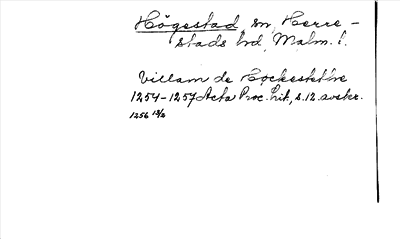 Högestad sn, Herre-
stads hd, Malm. l.
villam de Hockestethe
1254-1257 Acta Proc. Lit., s. 12. avskr.
1256 13/2